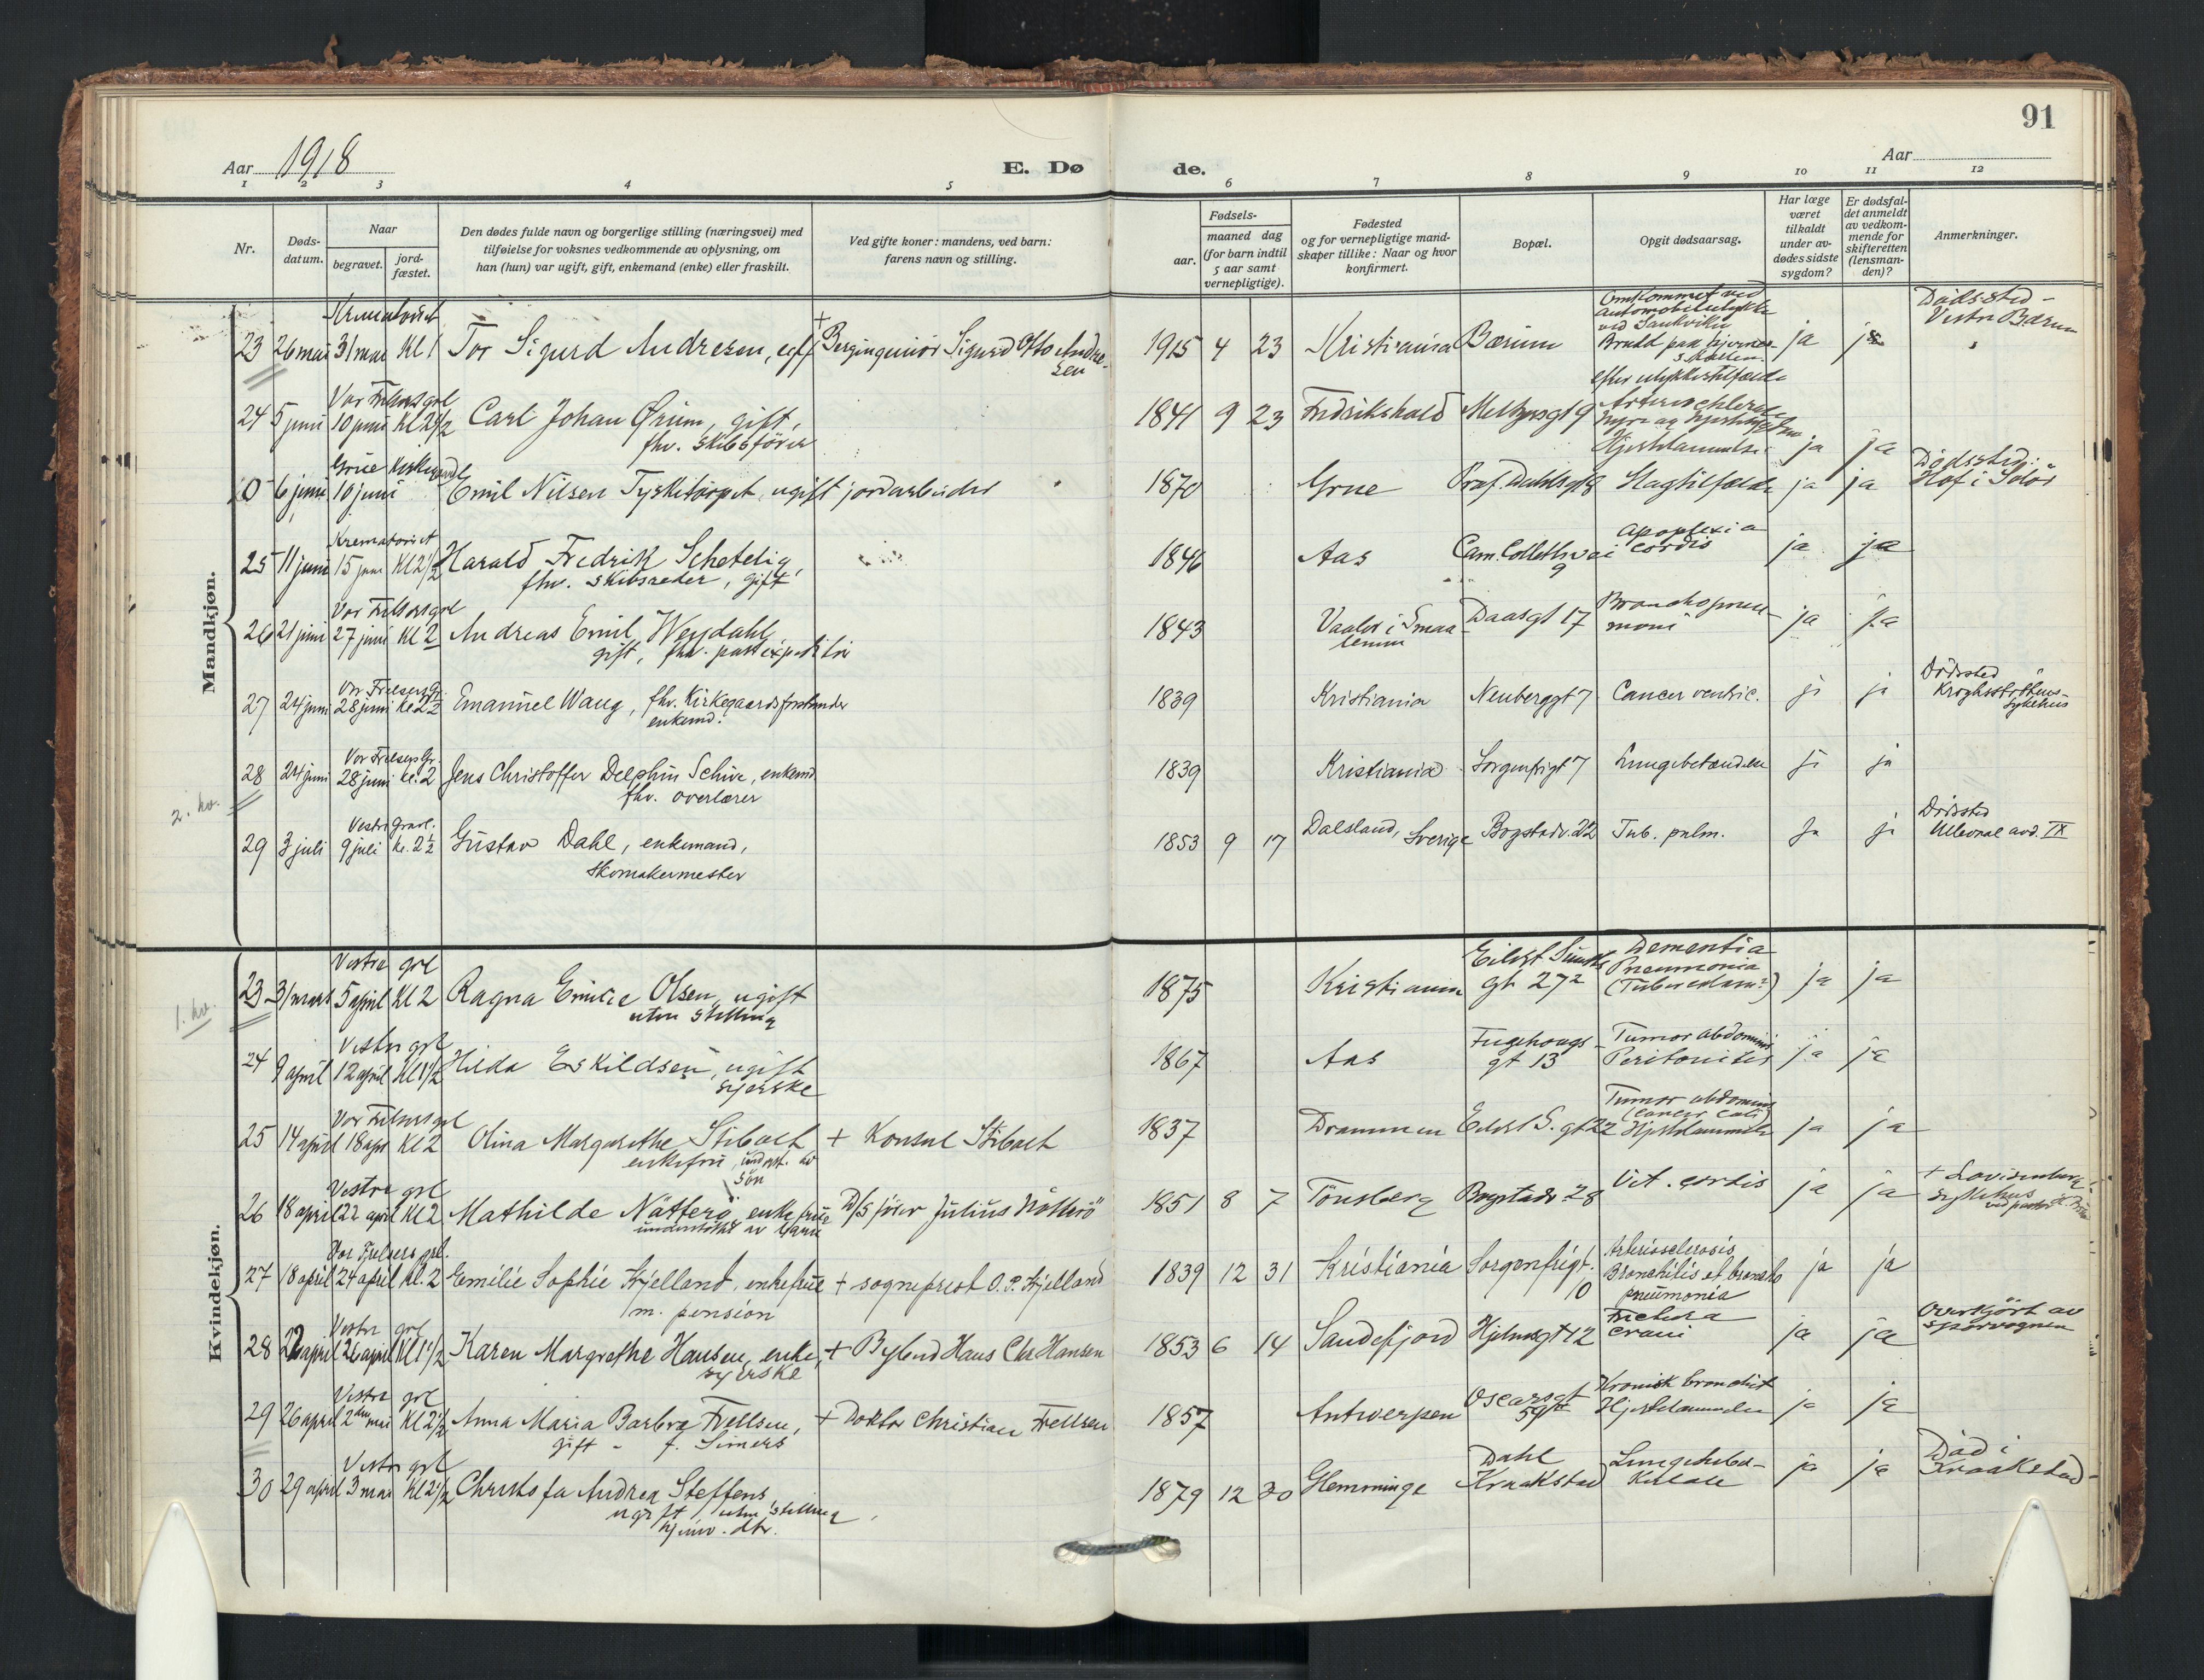 91
Aar 1918
E. Dø
de.
Aar
1 2 3 4 5 6 7 8 9 10 11 12
Nr.
Døds-
datum.
Naar
begravet.
jord-
fæstet.
Den dødes fulde navn og borgerlige stilling (næringsvei) med
tilføielse for voksnes vedkommende av oplysning, om
han (hun) var ugift, gift, enkemand (enke) eller fraskilt.
Ved gifte koner: mandens, ved barn:
farens navn og stilling.
Fødsels-
aar.
maaned dag
(for barn indtil
5 aar samt
vernepligtige).
Fødested
og for vernepligtige mand-
skaper tillike: Naar og hvor
konfirmert.
Bopæl.
Opgit dødsaarsag.
Har læge
været
tilkaldt
under av-
dødes sidste
sygdom?
Er dødsfal-
det anmeldt
av vedkom-
mende for
skifteretten
(lensman-
den)?
Anmerkninger.
Mandkjøn.
Krematoriet
Omkommet ved
automobilulykke
ved Sandviken
Dødssted -
Vestre Bærum
23 26 mai 31 mai Kl 1 Tor Sigurd Andresen, + Bergingeniør Sigurd Otto Andre-
sen
1915 4 23 Kristiania Bærum Brudd paa hjerne-
skallen ja ja
efter ulykkestilfælde
Vor Frelsers grl
24 5 juni 10 juni Kl 2 1/2 Carl Johan Ørum, gift,
fhv. skibsfører
1841 9 23 Fredrikshald Meltzersgt 9
Hjertelammelse ja ja
Grue Kirkegaard
0 6 juni 10 juni Emil Nilsen Tyskitorpet ugift jordarbeider
1870 Grue Prof. Dahlsgt 8 Slagtilfælde ja ja
Dødssted:
Hof i Solør
Krematoriet
25 11 juni 15 juni Kl 2 1/2 Harald Fredrik Schetelig,
fhv. skibsreder, gift
1846 Aas Cam. Collettsvei
9
apoplexia
cordis ja ja
Vor Frelsers grl
26 21 juni 27 juni Kl 2 Andreas Emil Weydahl
gift, fhv. postexpeditør
1843 Vaaler i Smaa-
lenene Daasgt 17 Bronchopneu-
moni ja ja
Vor Frelsers Gr.
27 24 juni 28 juni kl 2 1/2 Emanuel Waug, fhv. Kirkegaardsforstander
enkemd.
1839 Kristiania Neuberggt 7 Cancer ventric. ja ja
Dødssted
Krohgstøttens-
sykehus
Vor Frelsers Gr.
28 24 juni 28 juni kl. 2 Jens Christoffer Delphin Schive, enkemd.
fhv. overlærer
1839 Kristiania Sorgenfrigt 7 Lungebetændelse ja ja
2. kv.
Vestre Gravl.
29 3 juli 9 juli kl. 2 1/2 Gustav Dahl, enkemand,
skomakermester
1853 9 17 Dalsland, Sverige Bogstadv. 22 Tub. pulm. ja ja
Dødssted
Ullevaal avd. IX
Kvindekjøn.
1. kv.
Vestre grl
23 31 mars 5 april Kl 2 Ragna Emilie Olsen, ugift
uten stilling
1875 Kristiania Eilert Sundts
gt 27 2
Dementia
Pneumonia
(Tuberculum?) ja ja
Vestre grl
24 9 april 12 april Kl 1 1/2 Hilda Eskildsen, ugift
syerske
1867 Aas Fuglehaugs-
gt 13 Tumor abdominis
Peritonitis ja ja
Vor Frelsers grl
25 14 april 18 apr Kl 2 Olina Margarethe Stibolt + Konsul Stibolt
enkefru, underst. av
søn
1837 Drammen Eilert S. gt 22
Tumor abdominis
(cancer coli)
Hjertelammelse ja ja
Vestre grl
26 18 april 22 april Kl 2 Mathilde Nøtterø, enkefrue D/S fører Julius Nøtterø
understøttet av barn
1851 8 7 Tønsberg Bogstadv 28 Vit. cordis ja ja
+ Lovisenberg
sykehus
Vor Frelsers grl.
27 18 april 24 april Kl. 2 Emilie Sophie Kjelland, enkefrue + sogneprest O. P. Kjelland
m. pension
1839 12 31 Kristiania Sorgenfrigt.
10
Arteriosclerosis
Bronchitis et broncho
pneumonia ja ja
Vestre grl
28 22 april 26 april Kl 1 1/2 Karen Margrethe Hansen, enke, + Bybud Hans Chr Hansen
syerske
1853 6 14 Sandefjord Hjelmsgt 12 Frectura
crani ja ja
Overkjørt av
sporvognen
Vestre grl
29 26 april 2den mai Kl 2 1/2 Anna Maria Barbra Frellsen, + Doktor Christian Frellsen
gift - f. Simers
1857 Antwerpen Oscarsgt
59 Kronisk bronchit
Hjertelammelse ja ja
Vestre grl
30 29 april 3 mai Kl 2 1/2 Christofa Andrea Steffens
ugift, uten stilling
hjemv. dtr.
1879 12 20 Glemminge Dahl
Kraakstad Lungetuber-
kulose ja ja
Død i
Kraakstad